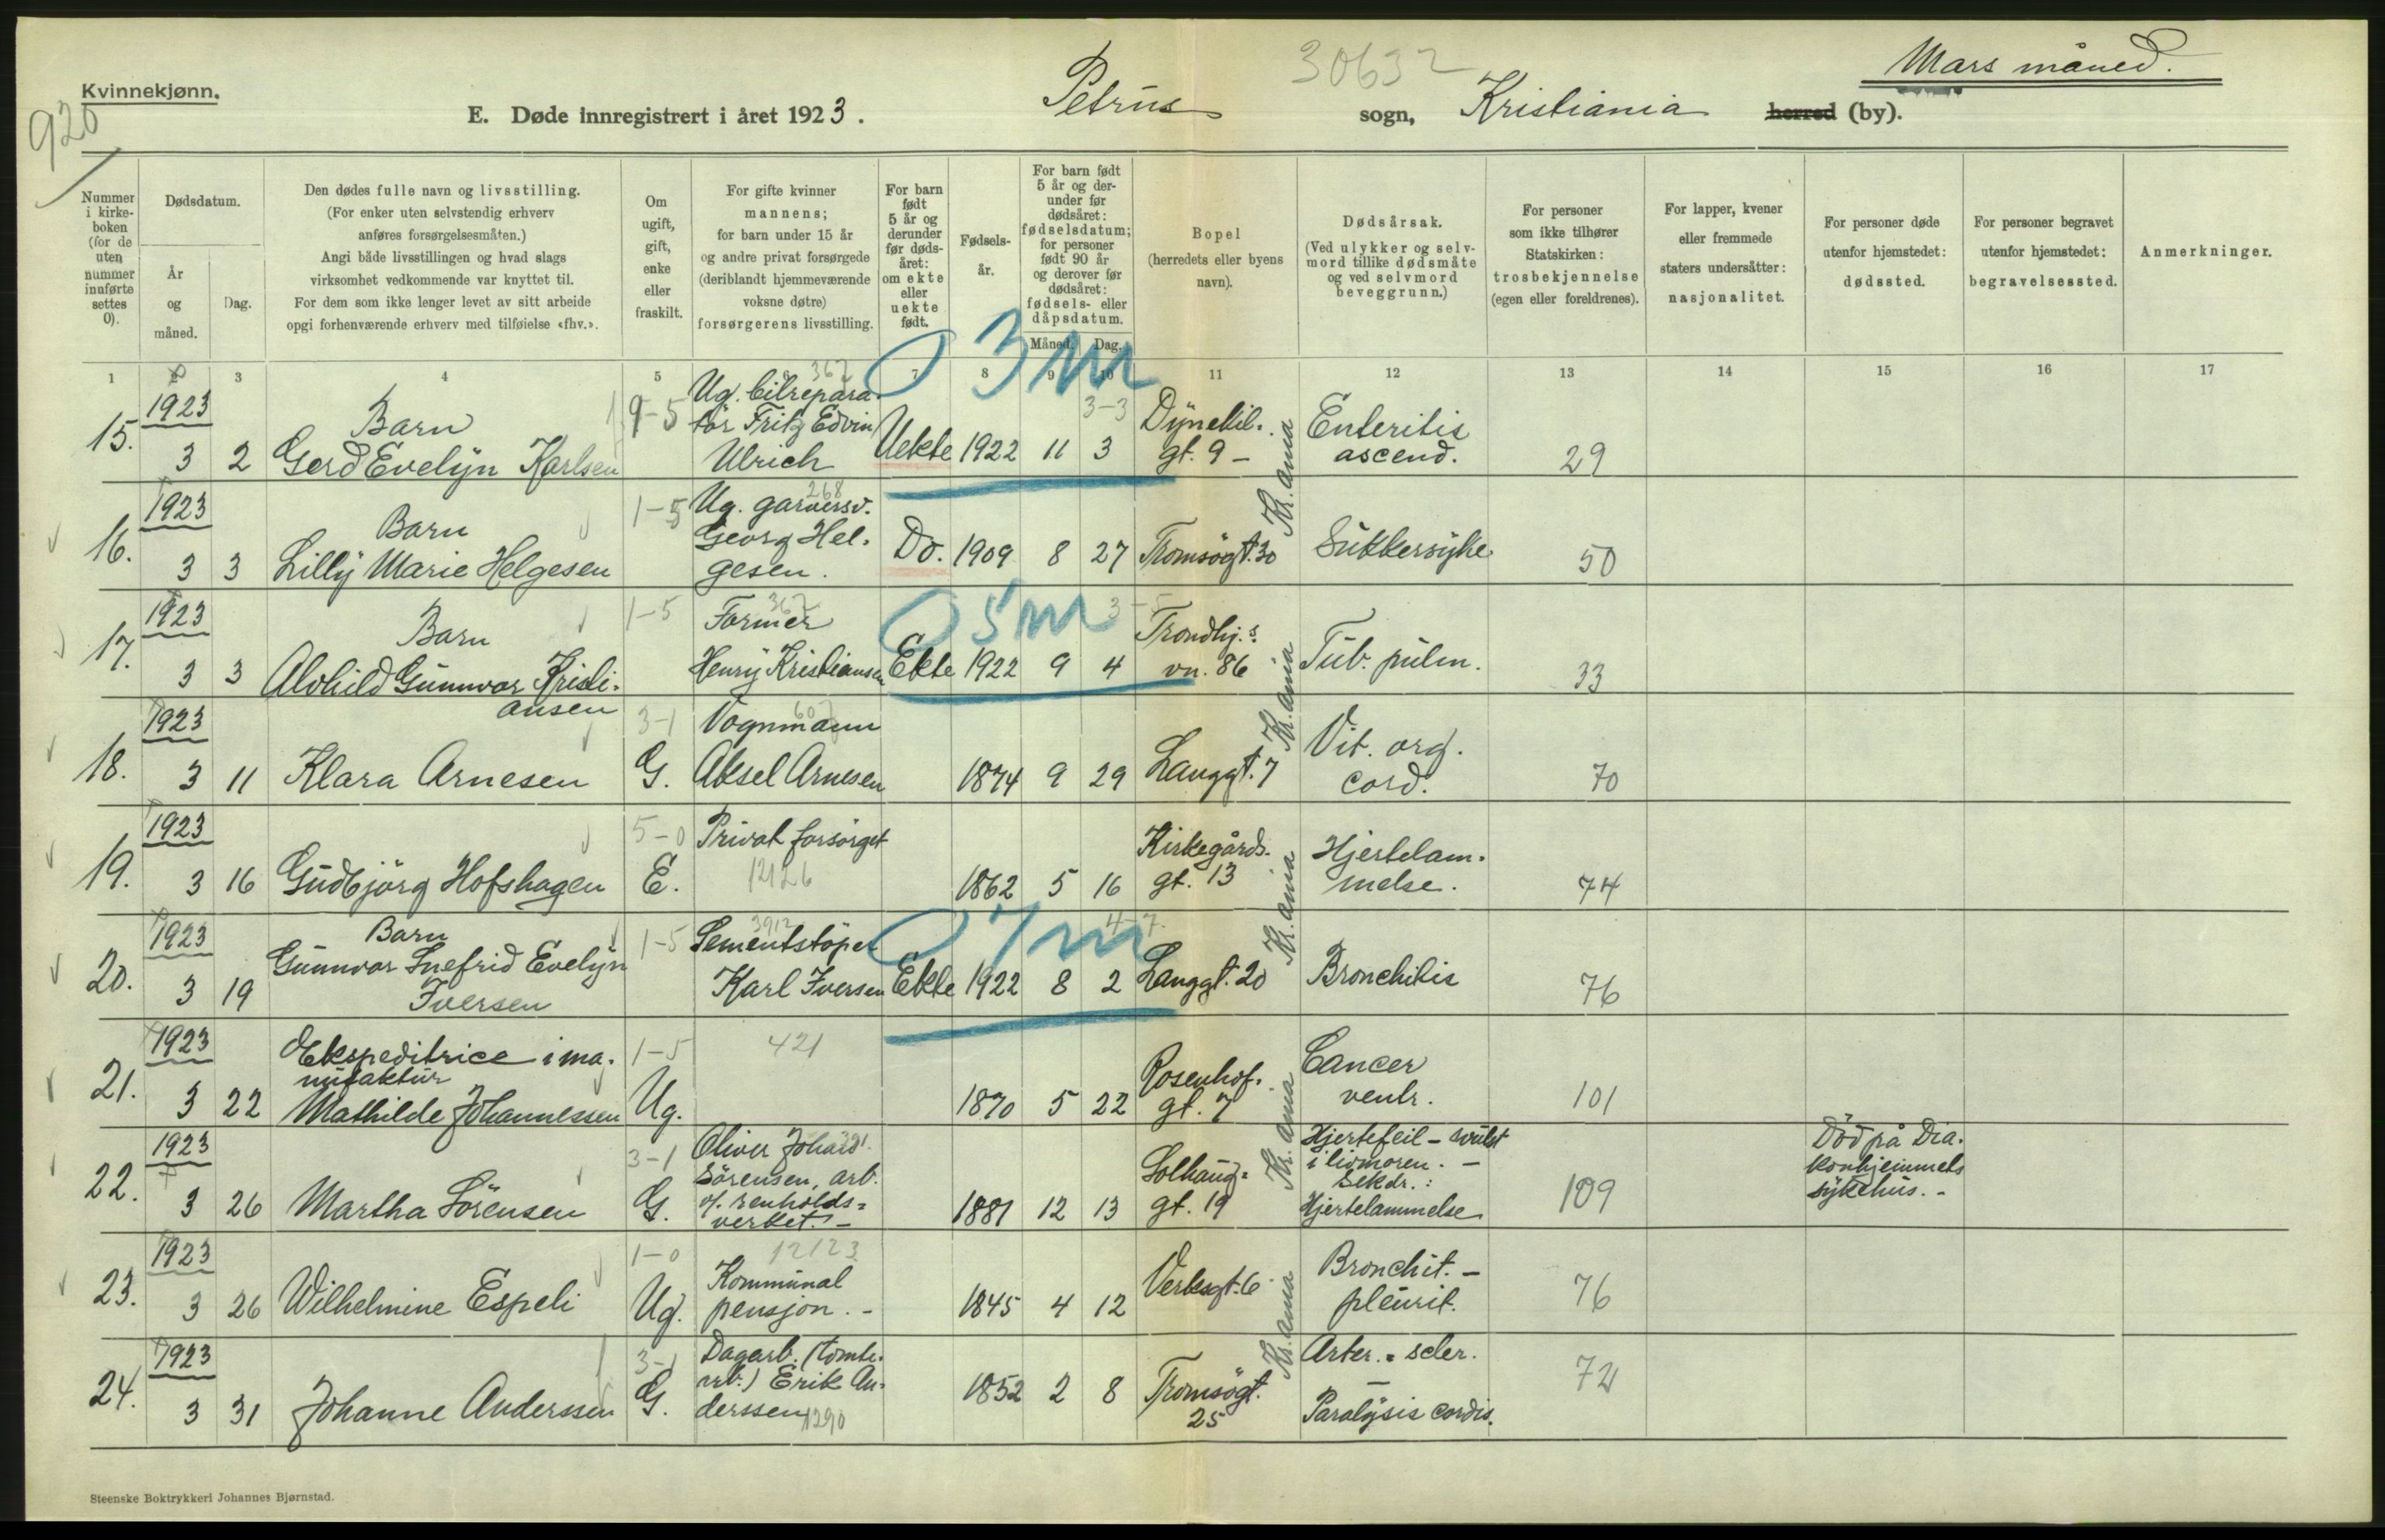 Kvinnekjønn.
920
E. Døde innregistrert i året 1923.
Petrus
30632
sogn,
Kristiania
herred (by).
Mars måned.
Nummer i kirkeboken (for de uten nummer innførte settes 0).
Dødsdatum.
År og måned.
Dag.
Den dødes fulle navn og livsstilling.
(For enker uten selvstendig erhverv
anføres forsørgelsesmåten.)
Angi både livsstillingen og hvad slags
virksomhet vedkommende var knyttet til.
For dem som ikke lenger levet av sitt arbeide
opgi forhenværende erhverv med tilføielse «fhv.».
Om ugift, gift, enke eller fraskilt.
For gifte kvinner
mannens;
for barn under 15 år
og andre privat forsørgede
(deriblandt hjemmeværende
voksne døtre)
forsørgerens livsstilling.
For barn født 5 år og derunder før dødsåret: om ekte eller uekte født.
Fødselsår.
For barn født 5 år og derunder før dødsåret: fødselsdatum; for personer født 90 år og derover før dødsåret: fødsels- eller dåpsdatum.
Måned. Dag.
Bopel
(herredets eller byens
navn).
Dødsårsak.
(Ved ulykker og selvmord tillike dødsmåte
og ved selvmord
beveggrunn.)
For personer
som ikke tilhører
Statskirken:
trosbekjennelse
(egen eller foreldrenes).
For lapper, kvener
eller fremmede
staters undersåtter:
nasjonalitet.
For personer døde
utenfor hjemstedet:
dødssted.
For personer begravet
utenfor hjemstedet:
begravelsessted.
Anmerkninger.
1 2 3 4 5 6 7 8 9 10 11 12 13 14 15 16 17
15. 1923 3 2 Barn
Gerd Evelyn Karlsen
9-5
Ug. bilreparatör Fritz Edvin
Ulrich
367
Uekte 1922 11 3
0 3 m
3-3
Dynekil.
gt. 9 -
Kr.ania
Enteritis
ascend.
29
16. 1923 3 3 Barn
Lilly Marie Helgesen
1-5
Ug. garversv.
Georg Helgesen.
268
Do. 1909 8 27
Tromsögt. 30
Sukkersyke
50
17. 1923 3 3 Barn
Alvhild Gunnvor Kristiansen
1-5
Former
Henry Kristiansen
367
Ekte 1922 9 4
0 5 m
3-5
Trondhj.s.
vn. 86
Kr.ania
Tub. pulm.
33
18. 1923 3 11 Klara Arnesen
3-1
G.
Vognmann
Aksel Arnesen
607
1874 9 29
Langgt. 7
Vit. org.
cord.
70
19. 1923 3 16 Gudbjörg Hofshagen
5-0
E.
Privat forsörget
12126
1862 5 16
Kirkegårds.
gt. 13
Kr.ania
Hjertelammelse.
74
20. 1923 3 19 Barn
Gunnvor Snefrid Evelyn
Iversen
1-5
Sementstöper
Karl Iversen
3912
Ekte 1922 8 2
0 7 m
4-7
Langgt. 20
Bronchitis
76
21. 1923 3 22 Ekspeditrice i manufaktur
Mathilde Johannessen
1-5
Ug.
421
1870 5 22
Rosenhof.
gt. 7
Kr.ania
Cancer
ventr.
101
22. 1923 3 26 Martha Sörensen
3-1
G.
Oliver Johan
Sörensen, arb.
v/. renholds=
verket. -
1881 12 13
Solhaug=
gt. 19
Hjertefeil - svulst
i livmoren. -
Sekdr.:
Hjertelammelse
109
Död på Dia.
konhjemmets
sykehus. -
23. 1923 3 26 Wilhelmine Espeli
1-0
Ug.
12123
Kommunal
pensjon. -
1845 4 12
Verksgt. 6
Kr.ania
Bronchit. -
pleurit.
76
24. 1923 3 31 Johanne Anderssen
3-1
G.
Dagarb. (tomte.
arb.) Erik Anderssen
1290
1852 2 8
Tromsögt.
25
Arter. = scler.
-
Paralysis cordis.
72
Steenske Boktrykkeri Johannes Bjørnstad.